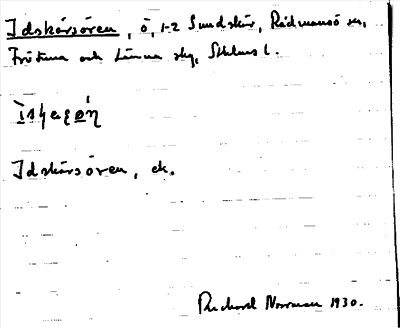 Idskärsören, ö, 1-2 Sundskär, Rådmansö sn,
Frötuna och Länna skg, Sthlms l.
Idskärsören, ek.
Rickard Norrman 1930.